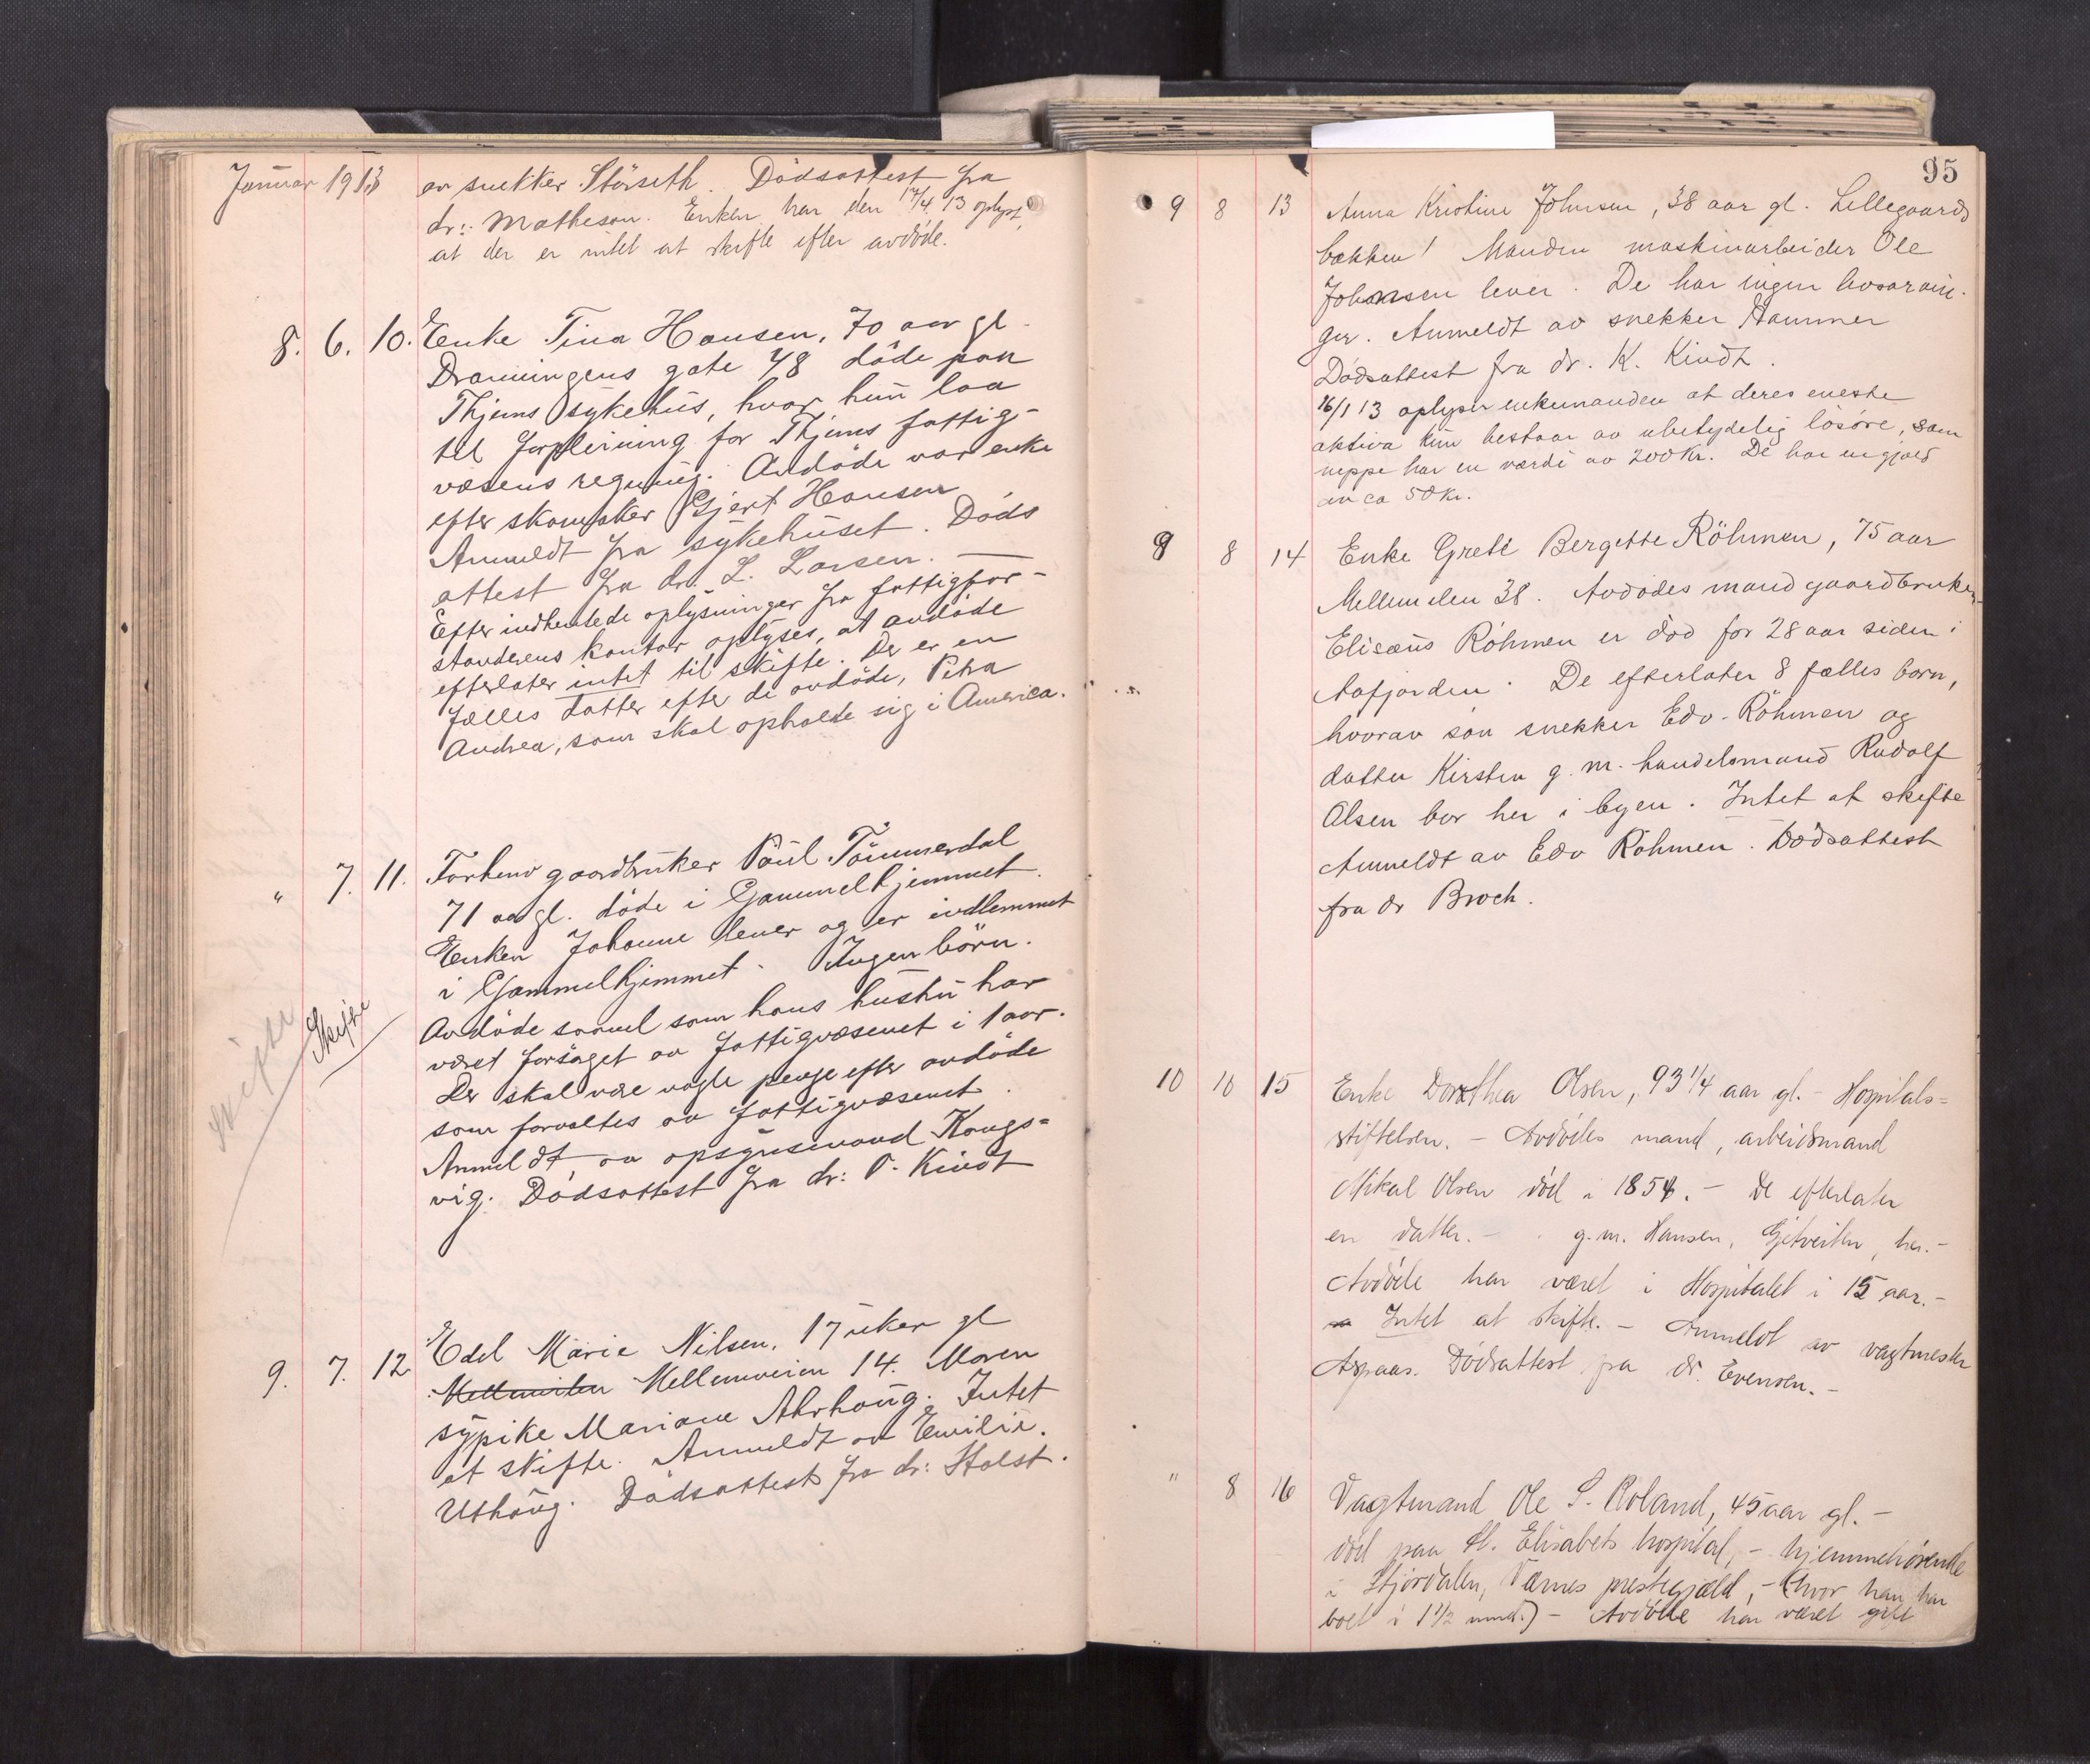 Januar 1913
av snekker Störseth. Dödsattest fra
dr: Matheson. Enken har den 17/4 13 oplyst,
at der er intet at skifte efter avdöde.
8. 6. 10. Enke Tina Hansen, 70 aar gl.
Dronningens gate 48 döde paa
Thjems sykehus, hvor hun laa
til forpleining for Thjems fattig-
væsens regning. Avdöde var enke
efter skomaker Gjert Hansen
Anmeldt fra sykehuset. Döds
attest fra dr. L. Larsen.
Efter indhentede oplysninger fra fattigfor-
standerens kontor oplyses, at avdöde
efterlater intet til skifte. Der er en
fælles datter efter de avdöde, Petra
Andrea, som skal opholde sig i America.
" 7. 11. Forhenv gaardbruker Paul Tömmerdal
71 aar gl. döde i Gammelhjemmet.
Enken Johanne lever og er indlemmet
i Gammelhjemmet. Ingen börn.
Avdöde saavel som hans hustru har
været forsörget av fattigvæsenet i 1 aar.
Der skal være nogle penge efter avdöde
som forvaltes av fattigvæsenet.
Anmeldt av opsynsmand Kongs=
vig. Dödsattest fra dr: O. Kindt
skifte
Skifte
9. 7. 12 Edel Marie Nilsen, 17 uker gl
Mellemveien 14. Moren
sypike Mariane Ahrhaug. Intet
at skifte. Anmeldt av Emilie
Uthaug. Dödsattest fra dr: Holst.
95
9 8 13 Anna Kristine Johnsen, 38 aar gl. Lillegaards
bakken 1 Manden maskinarbeider Ole
Johansen lever. De har ingen livsarvin-
ger. Anmeldt av snekker Hammer
Dödsattest fra dr. K. Kindt.
16/1 13 oplyser enkemanden at deres eneste
aktiva kun bestaar av ubetydelig lösöre, som
neppe har en værdi av 200 kr. De har en gjæld
av ca 50 kr.
9 8 14 Enke Grete Bergitte Röhmen, 75 aar
Mellemilen 38. Avdödes mand gaardbruker
Elisæus Röhmen er död for 28 aar siden i
Aafjorden. De efterlater 8 fælles börn,
hvorav sön snekker Edv. Röhmen og
datter Kirsten g. m. handelsmand Rudolf
Olsen bor her i byen. Intet at skifte
Anmeldt av Edv Röhmen. Dödsattest
fra dr Broch.
10 10 15 Enke Dorothea Olsen, 93 1/4 aar gl. - Hospitals=
stiftelsen. - Avdödes mand, arbeidsmand
Mikal Olsen död i 1854. - De efterlater
en datter. - g. m. Hansen, Gjetveiten, her. -
Avdöde har været i Hospitalet i 15 aar. -
Intet at skifte. - Anmeldt av vagtmester
Aspaas. Dödsattest fra dr. Evensen. -
" 8 16 Vagtmand Ole S. Roland, 45 aar gl. -
död paa St. Elisabets hospital, - hjemmehörende
i Stjördalen, Værnes prestegjæld, - (hvor han har
boet i 1 1/2 mnd.) - Avdöde har været gift